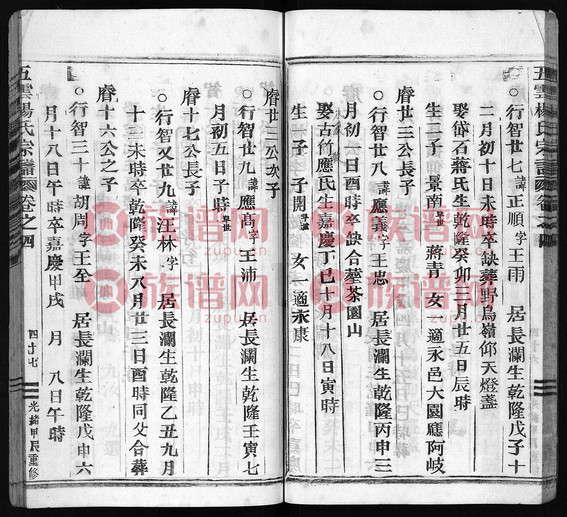 五雲楊氏宗譜
○行智廿七諱正順字王雨 居長瀾生乾隆戊子十
二月初十日未時卒缺葬野烏嶺仰天燈盞
娶岱石蔣氏生乾隆癸卯三月廿五日辰時
生二子景南早世 蔣青 女一適永邑大園應阿岐
𦞦廿三公長子
○行智廿八諱應義字王忠 居長瀾生乾隆丙申三
月初一日酉時卒缺合墓茶園山
娶古竹應氏生嘉慶丁巳十月十八日寅時
生一子子開早世 女一適永康
𦞦廿三公次子
○行智廿九諱應高字王沛 居長瀾生乾隆壬寅七
月初五日子時早世
𦞦十七公長子
○行智又廿九諱汪林字 居長瀾生乾隆乙丑九月
十三未時卒乾隆癸未八月廿三日酉時同父合葬
𦞦十六公之子
○行智三十諱胡周字王全 居長瀾生乾隆戊申六
月十八日午時卒嘉慶甲戌 月 八日午時
五雲楊氏宗譜 卷之四 四十七 光緒甲辰重修
族谱网
族谱网
族谱网
族谱网